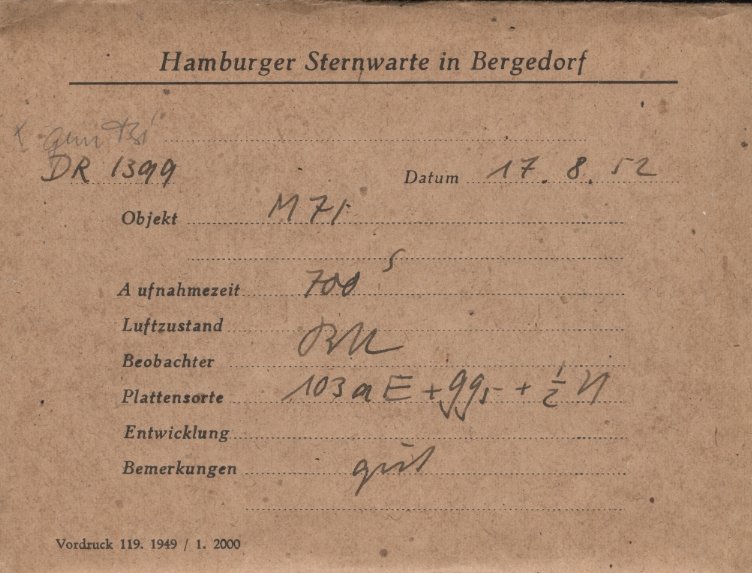 Hamburger Sternwarte in Bergedorf
DR 1399 Datum 17. 8. 52
Objekt M 71
Aufnahmezeit 700 s
Luftzustand
Beobachter
Plattensorte 103 a E + gg5 + ½ N
Entwicklung
Bemerkungen gut
Vordruck 119. 1949 / 1. 2000